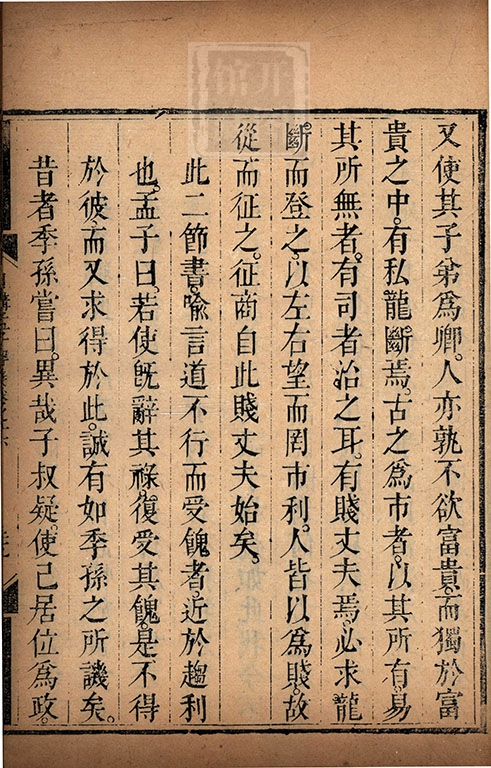 又使其子弟爲卿。人亦孰不欲富貴。而獨於富
貴之中。有私龍斷焉。古之爲市者。以其所有。易
其所無者。有司者治之耳。有賤丈夫焉。必求龍
斷而登之。以左右望而罔市利。人皆以爲賤。故
從而征之。征商自此賤丈夫始矣。
此二節書。喻言道不行而受餽者。近於趨利
也。孟子曰。若使旣辭其祿。復受其餽。是不得
於彼。而又求得於此。誠有如季孫之所譏矣。
昔者季孫嘗曰。異哉子叔疑。使己居位爲政。